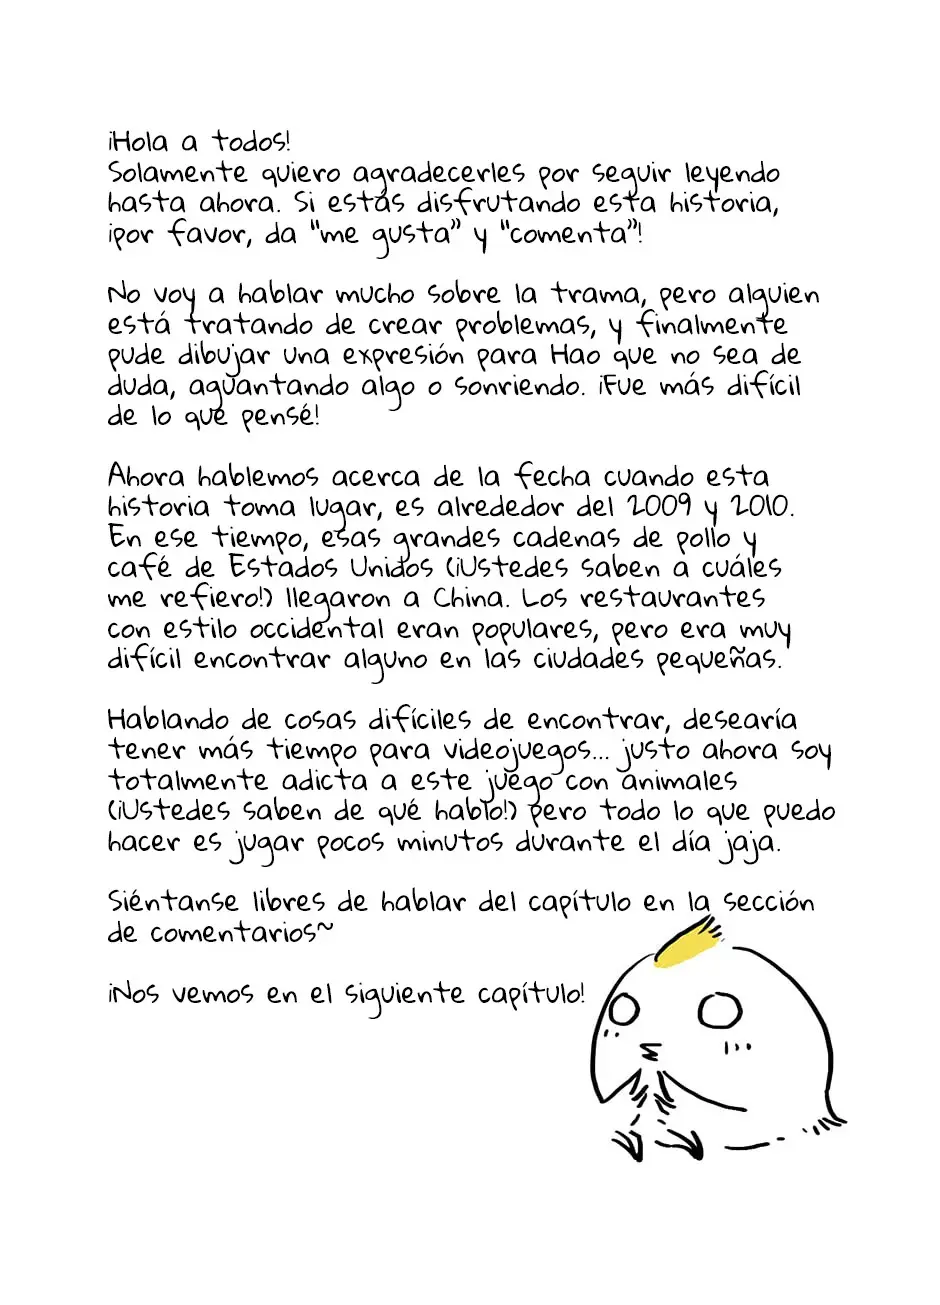 ¡Hola a todos!
Solamente quiero agradecerles por seguir leyendo
hasta ahora. Si estás disfrutando esta historia,
¡por favor, da "me gusta" y "comenta"!
No voy a hablar mucho sobre la trama, pero alguien
está tratando de crear problemas, y finalmente
pude dibujar una expresión para Hao que no sea de
duda, aguantando algo o sonriendo. ¡Fue más difícil
de lo que pensé!
Ahora hablemos acerca de la fecha cuando esta
historia toma lugar, es alrededor del 2009 y 2010.
En ese tiempo, esas grandes cadenas de pollo y
café de Estados Unidos (¡Ustedes saben a cuáles
me refiero!) llegaron a China. Los restaurantes
con estilo occidental eran populares, pero era muy
difícil encontrar alguno en las ciudades pequeñas.
Hablando de cosas difíciles de encontrar, desearía
tener más tiempo para videojuegos... justo ahora soy
totalmente adicta a este juego con animales
(¡Ustedes saben de qué hablo!) pero todo lo que puedo
hacer es jugar pocos minutos durante el día jaja.
Siéntanse libres de hablar del capítulo en la sección
de comentarios~
¡Nos vemos en el siguiente capítulo!